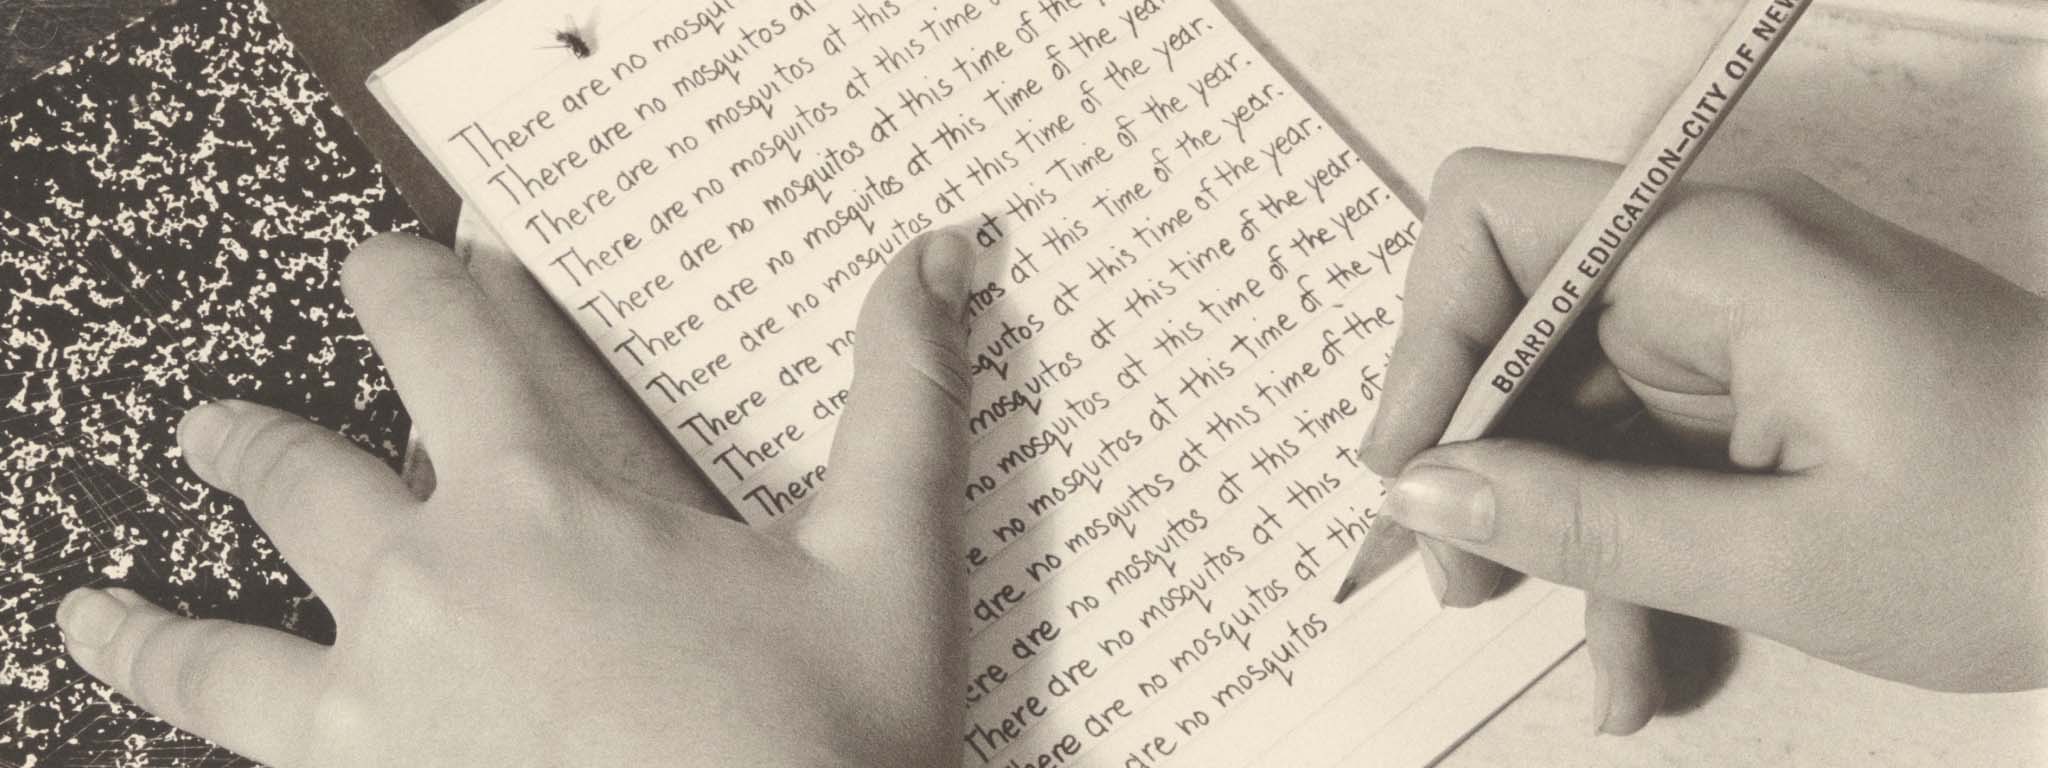 There are no mosqui
There are no mosquitos a
There are no mosquitos at this
There are no mosquitos at this time o
There are no mosquitos at this time of the
There are no mosquitos at this time of the yea
There are no mosquitos at this time of the year.
There are no at this time of the year.
There are tos at this time of the year.
There squitos at this time of the year.
mosquitos at this time of the year.
no mosquitos at this time of the year.
e no mosquitos at this time of the year
are no mosquitos at this time of the
ere are no mosquitos at this time of
There are no mosquitos at this t
here are no mosquitos at this
are no mosquitos
BOARD OF EDUCATION—CITY OF NEW